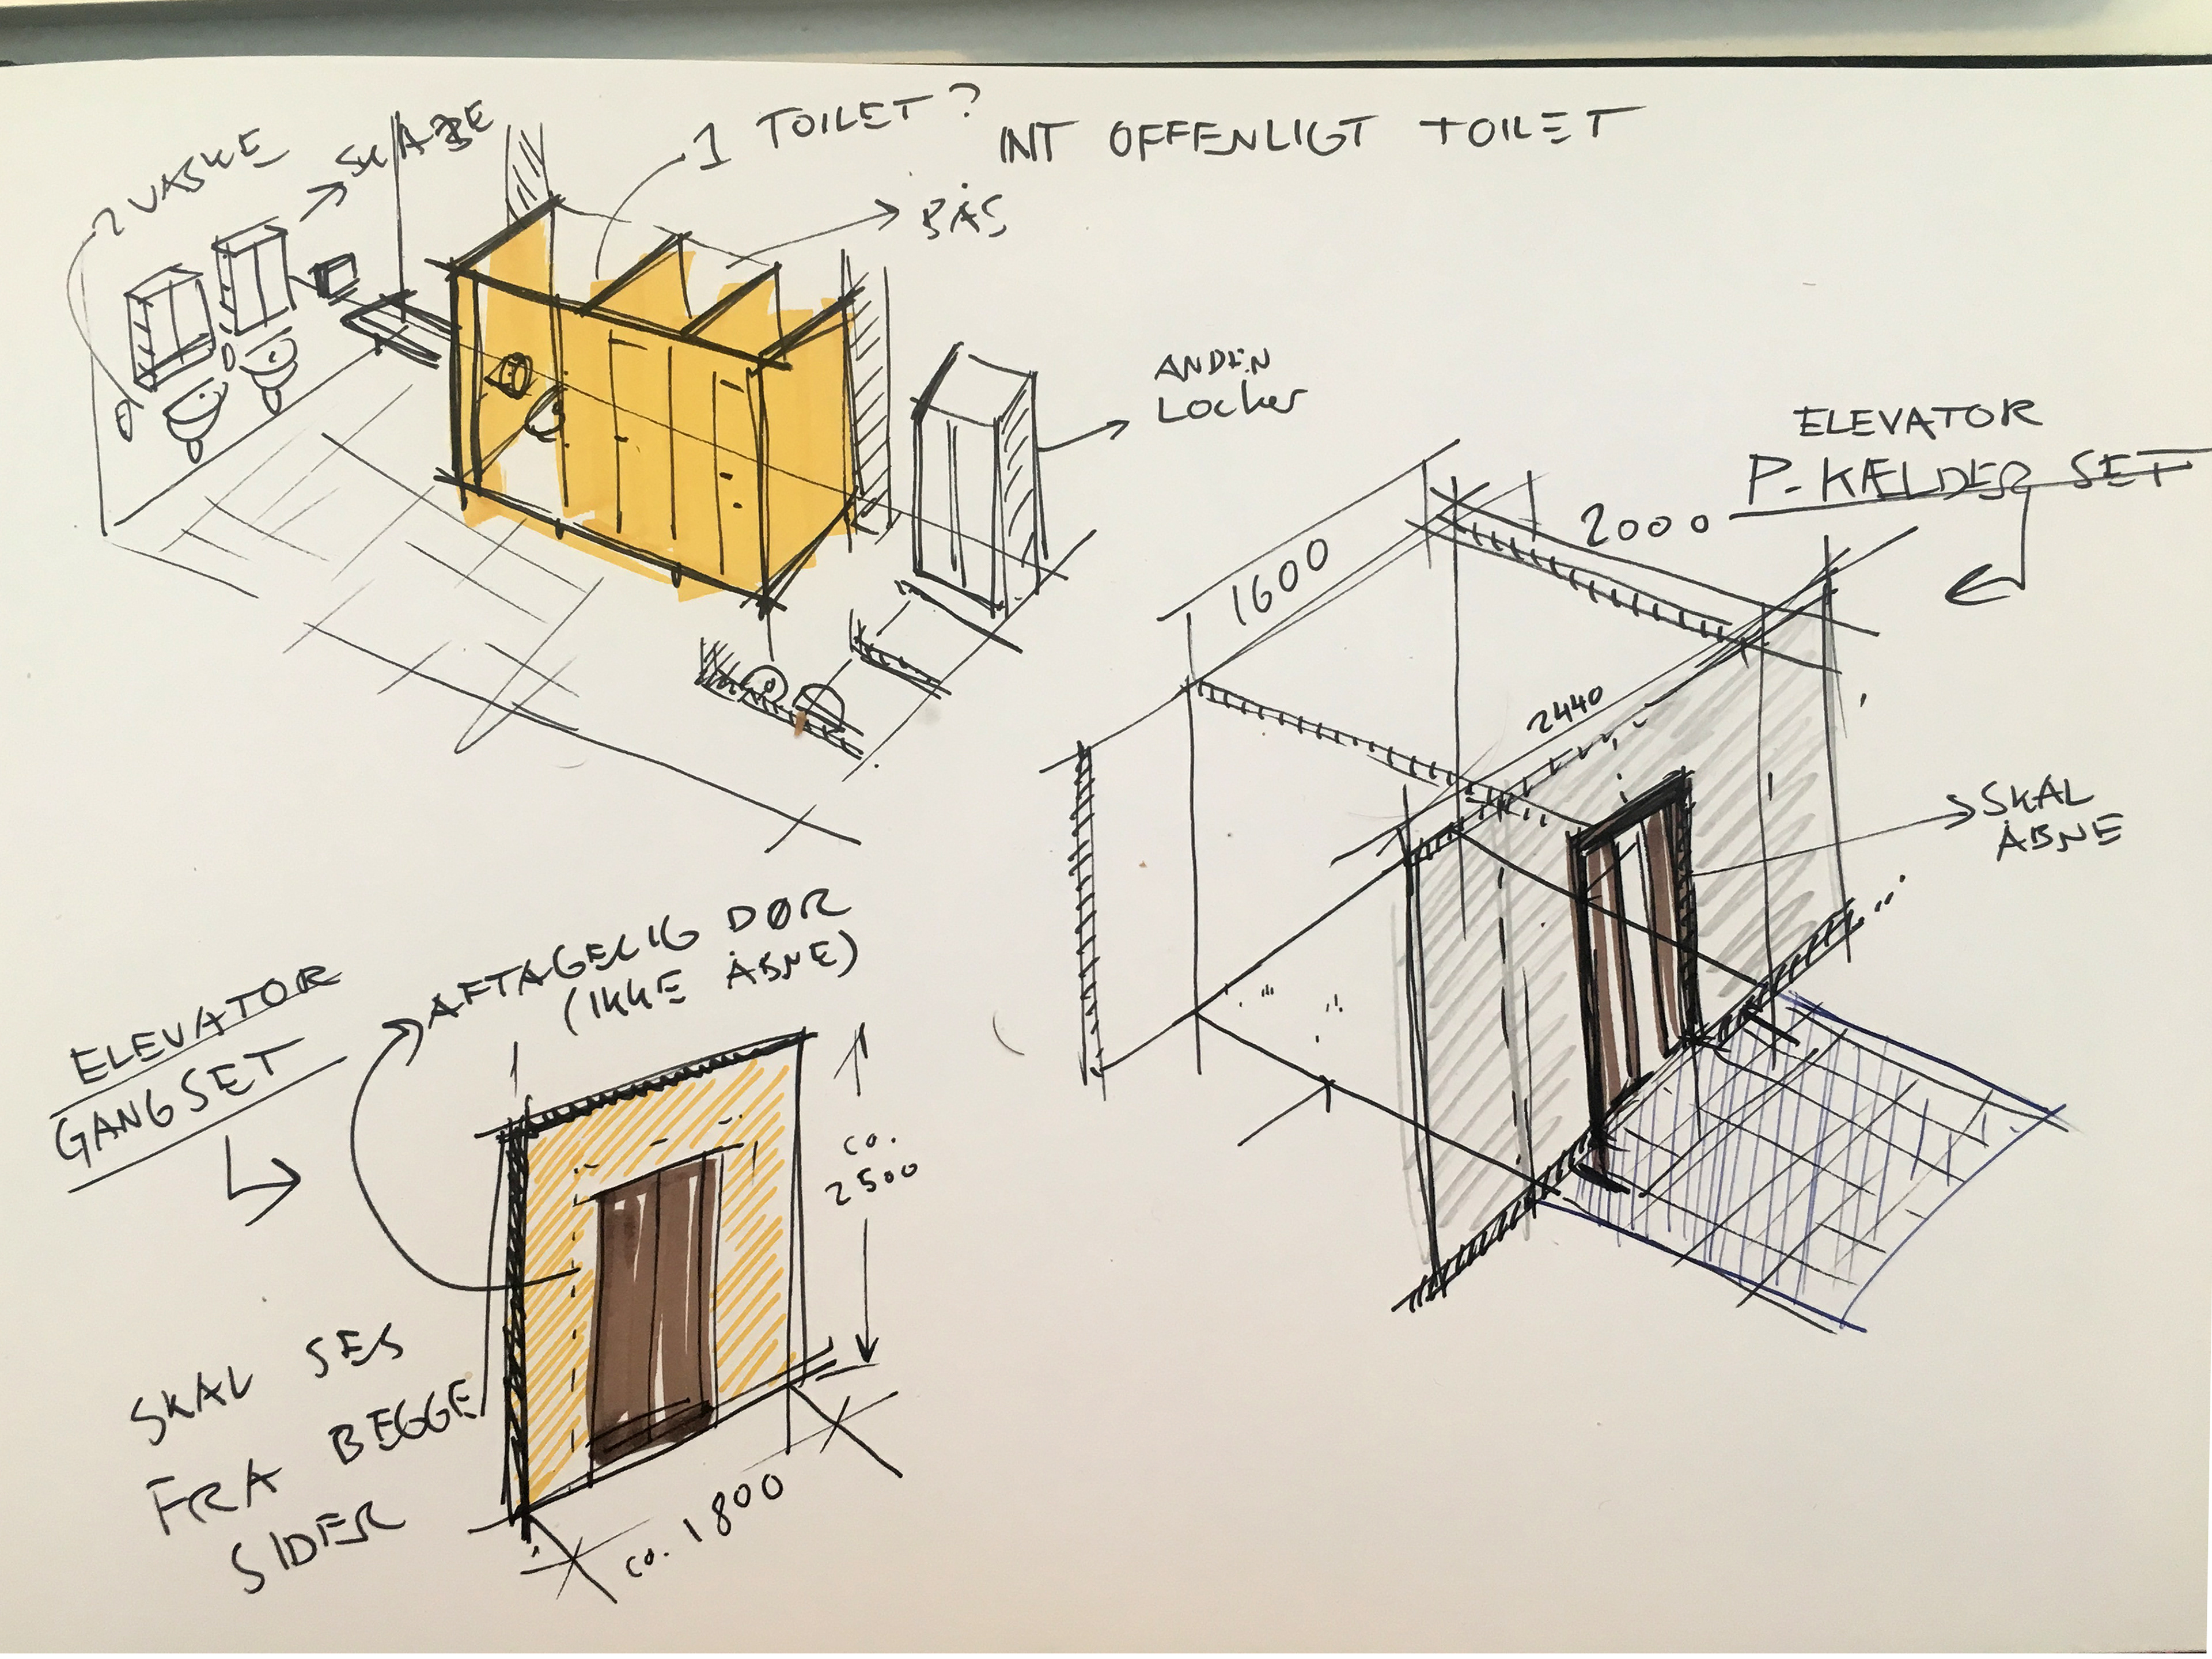 2 VASKE
SKABE
1 TOILET?
INT OFFENLIGT TOILET
BÅS
ANDEN
LOCKER
ELEVATOR
P-KÆLDER SET
2000
1600
2440
SKAL
ÅBNE
AFTAGELIG DØR
(IKKE ÅBNE)
ELEVATOR
GANGSET
ca.
2500
SKAL SES
FRA BEGGE
SIDER
ca. 1800